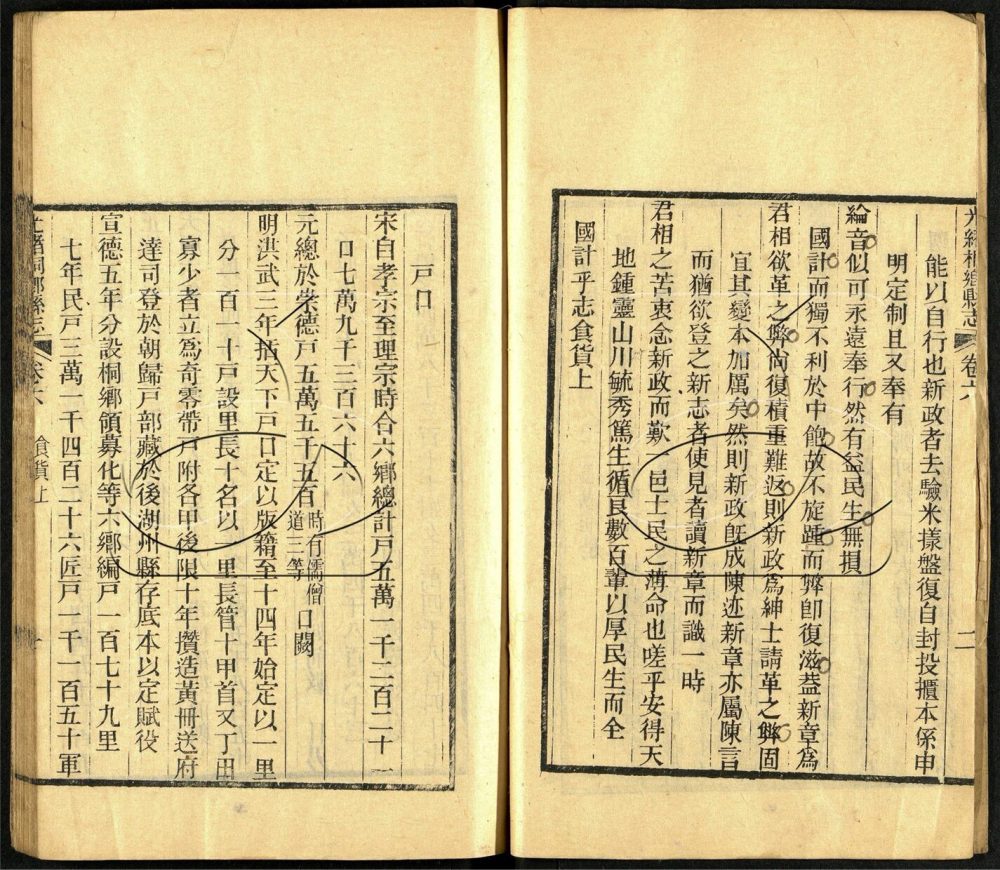 光緒桐鄉縣志 卷六 二
能以自行也新政者去驗米樣盤復自封投櫃本係申
明定制且又奉有
綸音似可永遠奉行然有益民生無損
國計而獨不利於中飽故不旋踵而弊卽復滋葢新章爲
君相欲革之弊尙復積重難返則新政爲紳士請革之弊固
宜其變本加厲矣然則新政旣成陳迹新章亦屬陳言
而猶欲登之新志者使見者讀新章而識一時
君相之苦衷念新政而歎一邑士民之薄命也嗟乎安得天
地鍾靈山川毓秀篤生循良數百輩以厚民生而全
國計乎志食貨上
戸口
宋自孝宗至理宗時合六鄉總計戸五萬一千二百二十一
口七萬九千三百六十六
元總於崇德戸五萬五千五百時有儒僧道三等口闕
明洪武二年括天下戸口定以版籍至十四年始定以一里
分一百一十戸設里長十名以一里長管十甲首又丁田
寡少者立爲奇零帶戸附各甲後限十年攢造黃冊送府
達司登於朝歸戸部藏於後湖州縣存底本以定賦役
宣德五年分設桐鄉領募化等六鄉編戸一百七十九里
七年民戸三萬一千四百二十六匠戸一千一百五十軍
光緒桐鄉縣志 卷六 食貨上